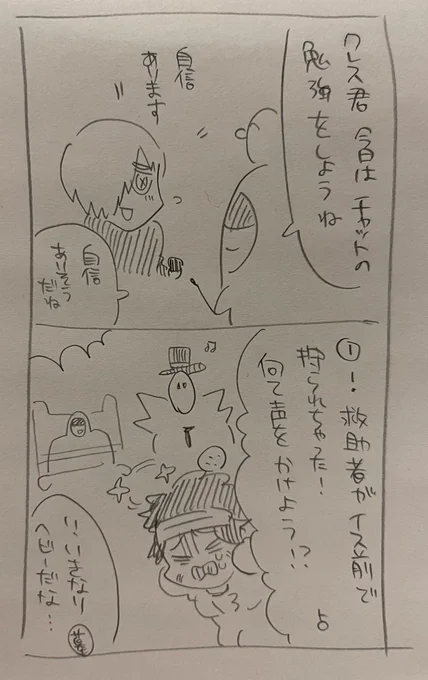 クレス君 今日は チャットの
勉強をしようね
自信
あります
自信
ありそう
だね
①! 救助者がイス前で
狩られちゃった!
何て声をかけよう!?
い、いきなり
ヘビーだな…